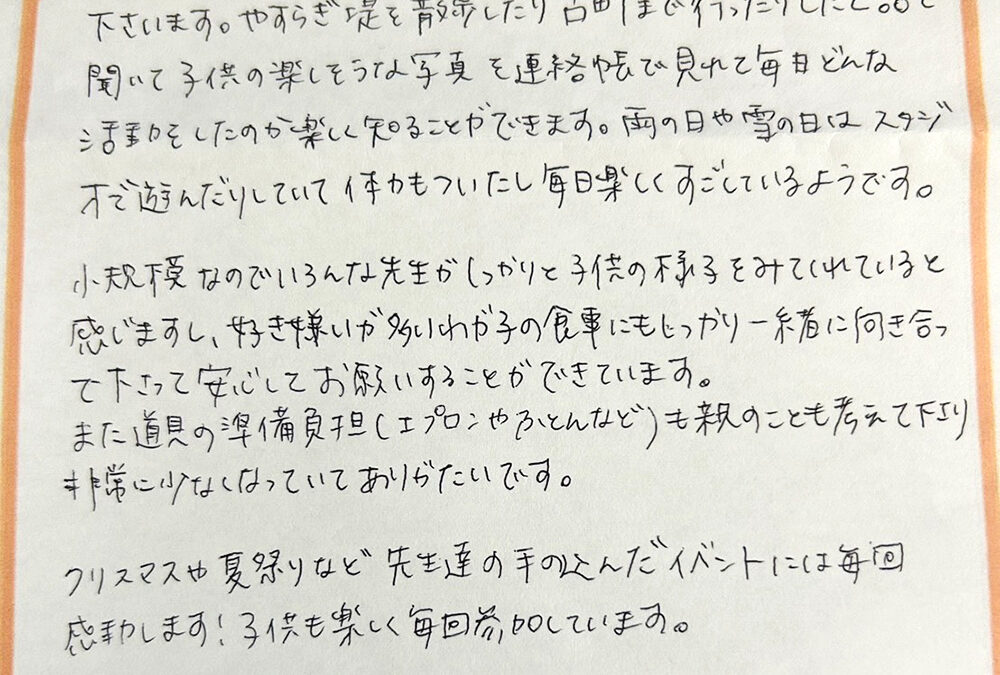 下さいます。やすらぎ堤を散歩したり まで行ったりしたと
聞いて子供の楽しそうな写真を連絡帳で見れて毎日どんな
活動をしたのか楽しく知ることができます。雨の日や雪の日はスタジ
オで遊んだりしていて体力もついたし毎日楽しくすごしているようです。
小規模なのでいろんな先生がしっかりと子供の様子をみてくれていると
感じますし、好き嫌いが多いわが子の食事にもしっかり一緒に向き合っ
て下さって安心してお願いすることができています。
また道具の準備負担(エプロンやふとんなど)も親のことも考えて下さり
非常に少なくなっていてありがたいです。
クリスマスや夏祭りなど先生達の手の込んだイベントには毎回
感動します!子供も楽しく毎回参加しています。